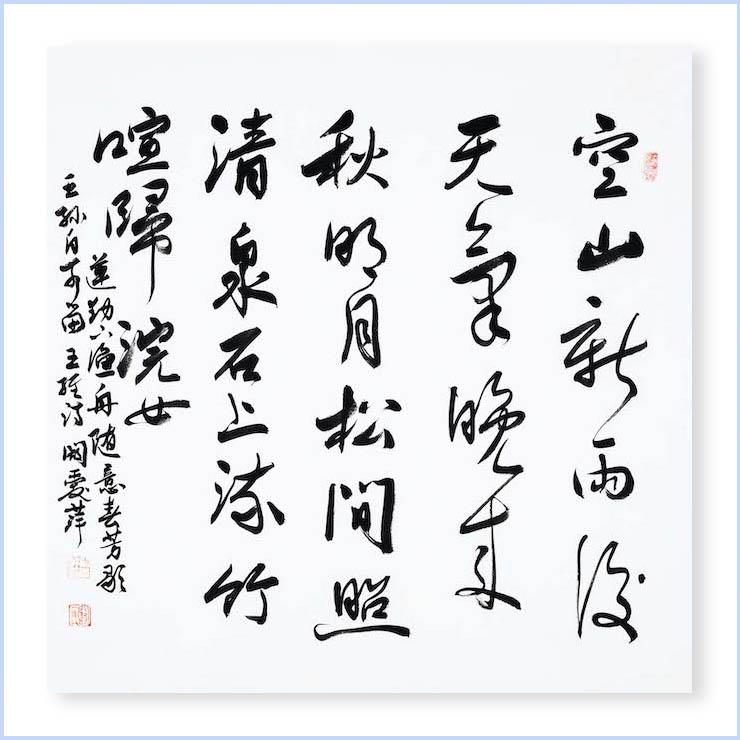 空山新雨後
天氣晚来
秋明月松間照
清泉石上流竹
喧歸浣女
蓮動下漁舟随意春芳歇
王孫自可留 王維诗 愛萍